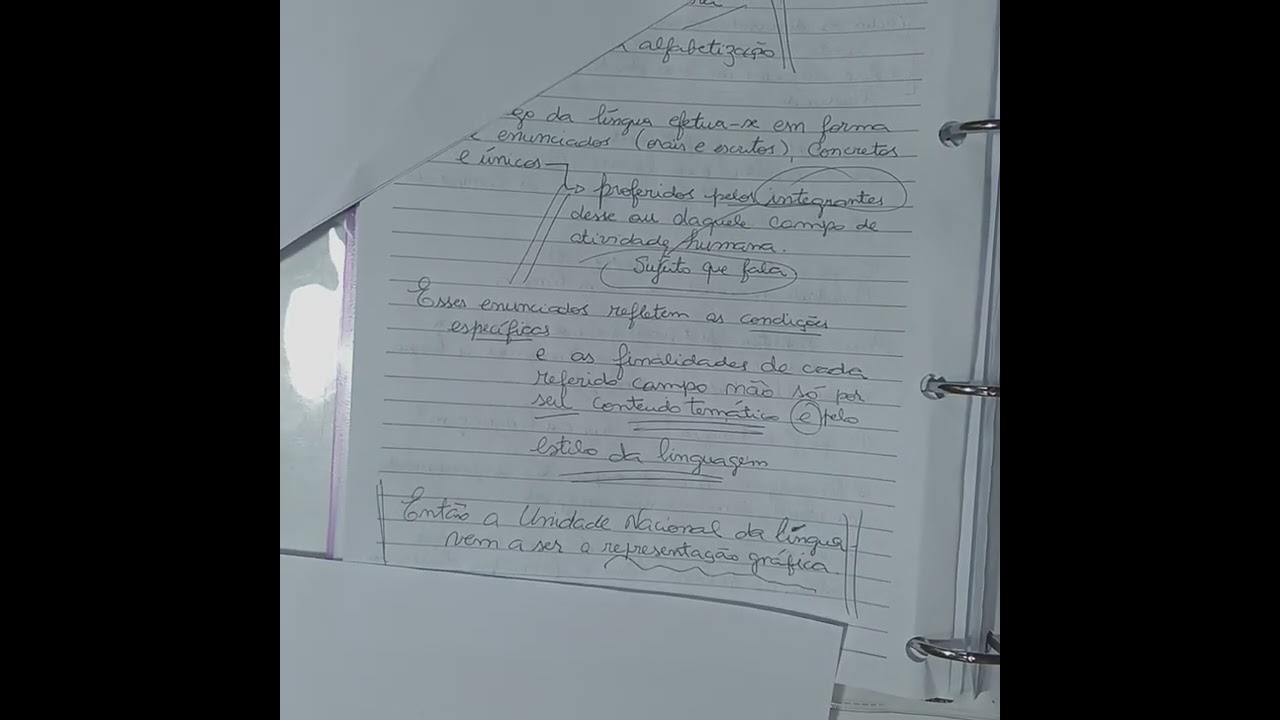 alfabetização
go da língua efetua-se em forma
enunciados (orais e escritos), concretos
e únicos
proferidos pelos integrantes
desse ou daquele campo de
atividade humana.
Sujeito que fala
Esses enunciados refletem as condições
específicas
e as finalidades de cada
referido campo não só por
seu conteudo temático e pelo
estilo da linguagem
Então a Unidade Nacional da língua
vem a ser a representação gráfica